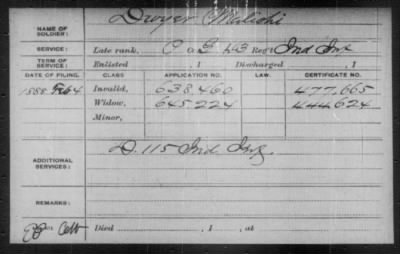 NAME OF SOLDIER: Dwyer Malichi
SERVICE: Late rank, Co G 43 Reg't Ind Inf
TERM OF SERVICE: Enlisted , 1 Discharged , 1
DATE OF FILING. CLASS. APPLICATION NO. LAW. CERTIFICATE NO.
1888 Feb 4 Invalid, 638,460 477,665
Widow, 645,224 444,624
Minor,
ADDITIONAL SERVICES: D. 115 Ind Inf
REMARKS:
Died , 1 , at